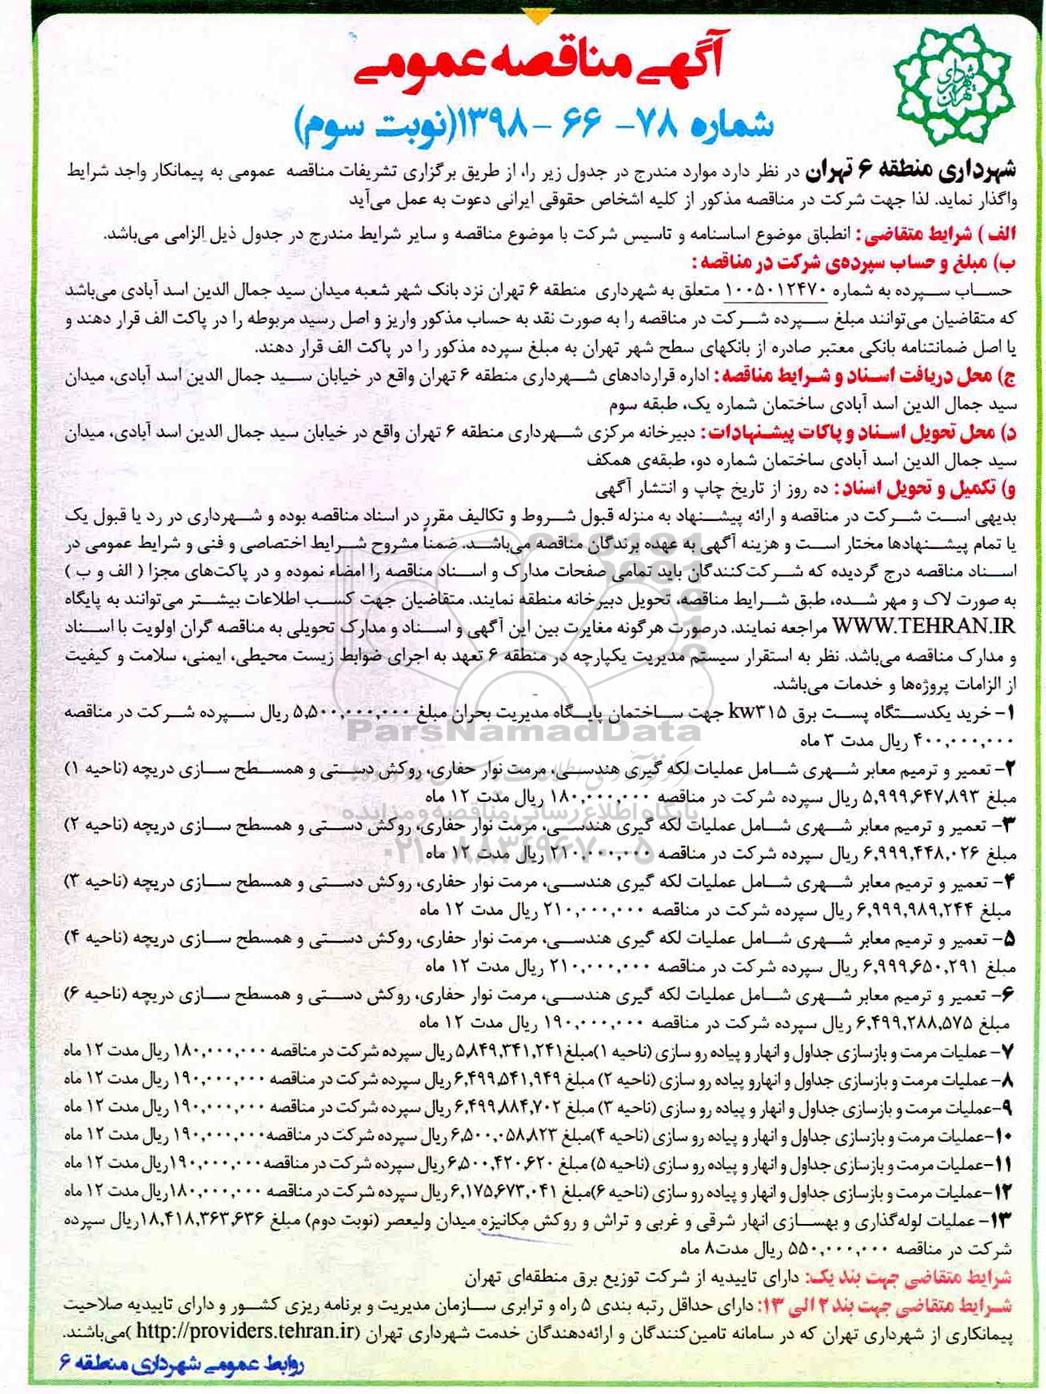 شهرداری تهران
آگهی مناقصه عمومی
شماره ۷۸- ۶۶ -۱۳۹۸(نوبت سوم)
شهرداری منطقه ۶ تهران در نظر دارد موارد مندرج در جدول زیر را، از طریق برگزاری تشریفات مناقصه عمومی به پیمانکار واجد شرایط
واگذار نماید. لذا جهت شرکت در مناقصه مذکور از کلیه اشخاص حقوقی ایرانی دعوت به عمل می‌آید
الف ) شرایط متقاضی : انطباق موضوع اساسنامه و تاسیس شرکت با موضوع مناقصه و سایر شرایط مندرج در جدول ذیل الزامی می‌باشد.
ب) مبلغ و حساب سپرده‌ی شرکت در مناقصه :
حساب سپرده به شماره ۱۰۰۵۰۱۲۴۷۰ متعلق به شهرداری منطقه ۶ تهران نزد بانک شهر شعبه میدان سید جمال الدین اسد آبادی می‌باشد
که متقاضیان می‌توانند مبلغ سپرده شرکت در مناقصه را به صورت نقد به حساب مذکور واریز و اصل رسید مربوطه را در پاکت الف قرار دهند و
یا اصل ضمانتنامه بانکی معتبر صادره از بانکهای سطح شهر تهران به مبلغ سپرده مذکور را در پاکت الف قرار دهند.
ج) محل دریافت اسناد و شرایط مناقصه : اداره قراردادهای شهرداری منطقه ۶ تهران واقع در خیابان سید جمال الدین اسد آبادی، میدان
سید جمال الدین اسد آبادی ساختمان شماره یک، طبقه سوم
د) محل تحویل اسناد و پاکات پیشنهادات : دبیرخانه مرکزی شهرداری منطقه ۶ تهران واقع در خیابان سید جمال الدین اسد آبادی، میدان
سید جمال الدین اسد آبادی ساختمان شماره دو، طبقه‌ی همکف
و) تکمیل و تحویل اسناد : ده روز از تاریخ چاپ و انتشار آگهی
بدیهی است شرکت در مناقصه و ارائه پیشنهاد به منزله قبول شروط و تکالیف مقرر در اسناد مناقصه بوده و شهرداری در رد یا قبول یک
یا تمام پیشنهادها مختار است و هزینه آگهی به عهده برندگان مناقصه می‌باشد. ضمناً مشروح شرایط اختصاصی و فنی و شرایط عمومی در
اسناد مناقصه درج گردیده که شرکت‌کنندگان باید تمامی صفحات مدارک و اسناد مناقصه را امضاء نموده و در پاکت‌های مجزا ( الف و ب )
به صورت لاک و مهر شده، طبق شرایط مناقصه، تحویل دبیرخانه منطقه نمایند. متقاضیان جهت کسب اطلاعات بیشتر می‌توانند به پایگاه
WWW.TEHRAN.IR مراجعه نمایند. درصورت هرگونه مغایرت بین این آگهی و اسناد و مدارک تحویلی به مناقصه گران اولویت با اسناد
و مدارک مناقصه می‌باشد. نظر به استقرار سیستم مدیریت یکپارچه در منطقه ۶ تعهد به اجرای ضوابط زیست محیطی، ایمنی، سلامت و کیفیت
از الزامات پروژه‌ها و خدمات می‌باشد.
۱- خرید یکدستگاه پست برق kw۳۱۵ جهت ساختمان پایگاه مدیریت بحران مبلغ ۵,۵۰۰,۰۰۰,۰۰۰ ریال سپرده شرکت در مناقصه
۴۰۰,۰۰۰,۰۰۰ ریال مدت ۳ ماه
ParsNamadData
۲- تعمیر و ترمیم معابر شهری شامل عملیات لکه گیری هندسی، مرمت نوار حفاری، روکش دستی و همسطح سازی دریچه (ناحیه ۱)
مبلغ ۵,۹۹۹,۶۴۷,۸۹۳ ریال سپرده شرکت در مناقصه ۱۸۰,۰۰۰,۰۰۰ ریال مدت ۱۲ ماه
پایگاه اطلاع رسانی مناقصه و مزایده
۳- تعمیر و ترمیم معابر شهری شامل عملیات لکه گیری هندسی، مرمت نوار حفاری، روکش دستی و همسطح سازی دریچه (ناحیه ۲)
مبلغ ۶,۹۹۹,۴۴۸,۰۲۶ ریال سپرده شرکت در مناقصه ۲۱۰,۰۰۰,۰۰۰ ریال مدت ۱۲ ماه
۰۲۱-۸۸۳۴۹۶۷۰-۵
۴- تعمیر و ترمیم معابر شهری شامل عملیات لکه گیری هندسی، مرمت نوار حفاری، روکش دستی و همسطح سازی دریچه (ناحیه ۳)
مبلغ ۶,۹۹۹,۹۸۹,۲۴۴ ریال سپرده شرکت در مناقصه ۲۱۰,۰۰۰,۰۰۰ ریال مدت ۱۲ ماه
۵- تعمیر و ترمیم معابر شهری شامل عملیات لکه گیری هندسی، مرمت نوار حفاری، روکش دستی و همسطح سازی دریچه (ناحیه ۴)
مبلغ ۶,۹۹۹,۶۵۰,۲۹۱ ریال سپرده شرکت در مناقصه ۲۱۰,۰۰۰,۰۰۰ ریال مدت ۱۲ ماه
۶- تعمیر و ترمیم معابر شهری شامل عملیات لکه گیری هندسی، مرمت نوار حفاری، روکش دستی و همسطح سازی دریچه (ناحیه ۶)
مبلغ ۶,۴۹۹,۲۸۸,۵۷۵ ریال سپرده شرکت در مناقصه ۱۹۰,۰۰۰,۰۰۰ ریال مدت ۱۲ ماه
۷- عملیات مرمت و بازسازی جداول و انهار و پیاده رو سازی (ناحیه ۱)مبلغ ۵,۸۴۹,۳۴۱,۲۴۱ ریال سپرده شرکت در مناقصه ۱۸۰,۰۰۰,۰۰۰ ریال مدت ۱۲ ماه
۸- عملیات مرمت و بازسازی جداول و انهارو پیاده رو سازی (ناحیه ۲) مبلغ ۶,۴۹۹,۵۴۱,۹۴۹ ریال سپرده شرکت در مناقصه ۱۹۰,۰۰۰,۰۰۰ ریال مدت ۱۲ ماه
۹-عملیات مرمت و بازسازی جداول و انهار و پیاده رو سازی (ناحیه ۳) مبلغ ۶,۴۹۹,۸۸۴,۷۰۲ ریال سپرده شرکت در مناقصه ۱۹۰,۰۰۰,۰۰۰ ریال مدت ۱۲ ماه
۱۰-عملیات مرمت و بازسازی جداول و انهار و پیاده رو سازی (ناحیه ۴)مبلغ ۶,۵۰۰,۰۵۸,۸۲۳ ریال سپرده شرکت در مناقصه ۱۹۰,۰۰۰,۰۰۰ ریال مدت ۱۲ ماه
۱۱-عملیات مرمت و بازسازی جداول و انهار و پیاده رو سازی (ناحیه ۵) مبلغ ۶,۵۰۰,۴۲۰,۶۲۰ ریال سپرده شرکت در مناقصه ۱۹۰,۰۰۰,۰۰۰ ریال مدت ۱۲ ماه
۱۲-عملیات مرمت و بازسازی جداول و انهار و پیاده رو سازی (ناحیه ۶)مبلغ ۶,۱۷۵,۶۷۳,۰۴۱ ریال سپرده شرکت در مناقصه ۱۸۰,۰۰۰,۰۰۰ ریال مدت ۱۲ ماه
۱۳- عملیات لوله‌گذاری و بهسازی انهار شرقی و غربی و تراش و روکش مکانیزه میدان ولیعصر (نوبت دوم) مبلغ ۱۸,۴۱۸,۳۶۳,۶۳۶ ریال سپرده
شرکت در مناقصه ۵۵۰,۰۰۰,۰۰۰ ریال مدت ۸ ماه
شرایط متقاضی جهت بند یک: دارای تاییدیه از شرکت توزیع برق منطقه‌ای تهران
شرایط متقاضی جهت بند ۲ الی ۱۳: دارای حداقل رتبه بندی ۵ راه و ترابری سازمان مدیریت و برنامه ریزی کشور و دارای تاییدیه صلاحیت
پیمانکاری از شهرداری تهران که در سامانه تامین‌کنندگان و ارائه‌دهندگان خدمت شهرداری تهران (http://providers.tehran.ir )می‌باشند.
روابط عمومی شهرداری منطقه ۶